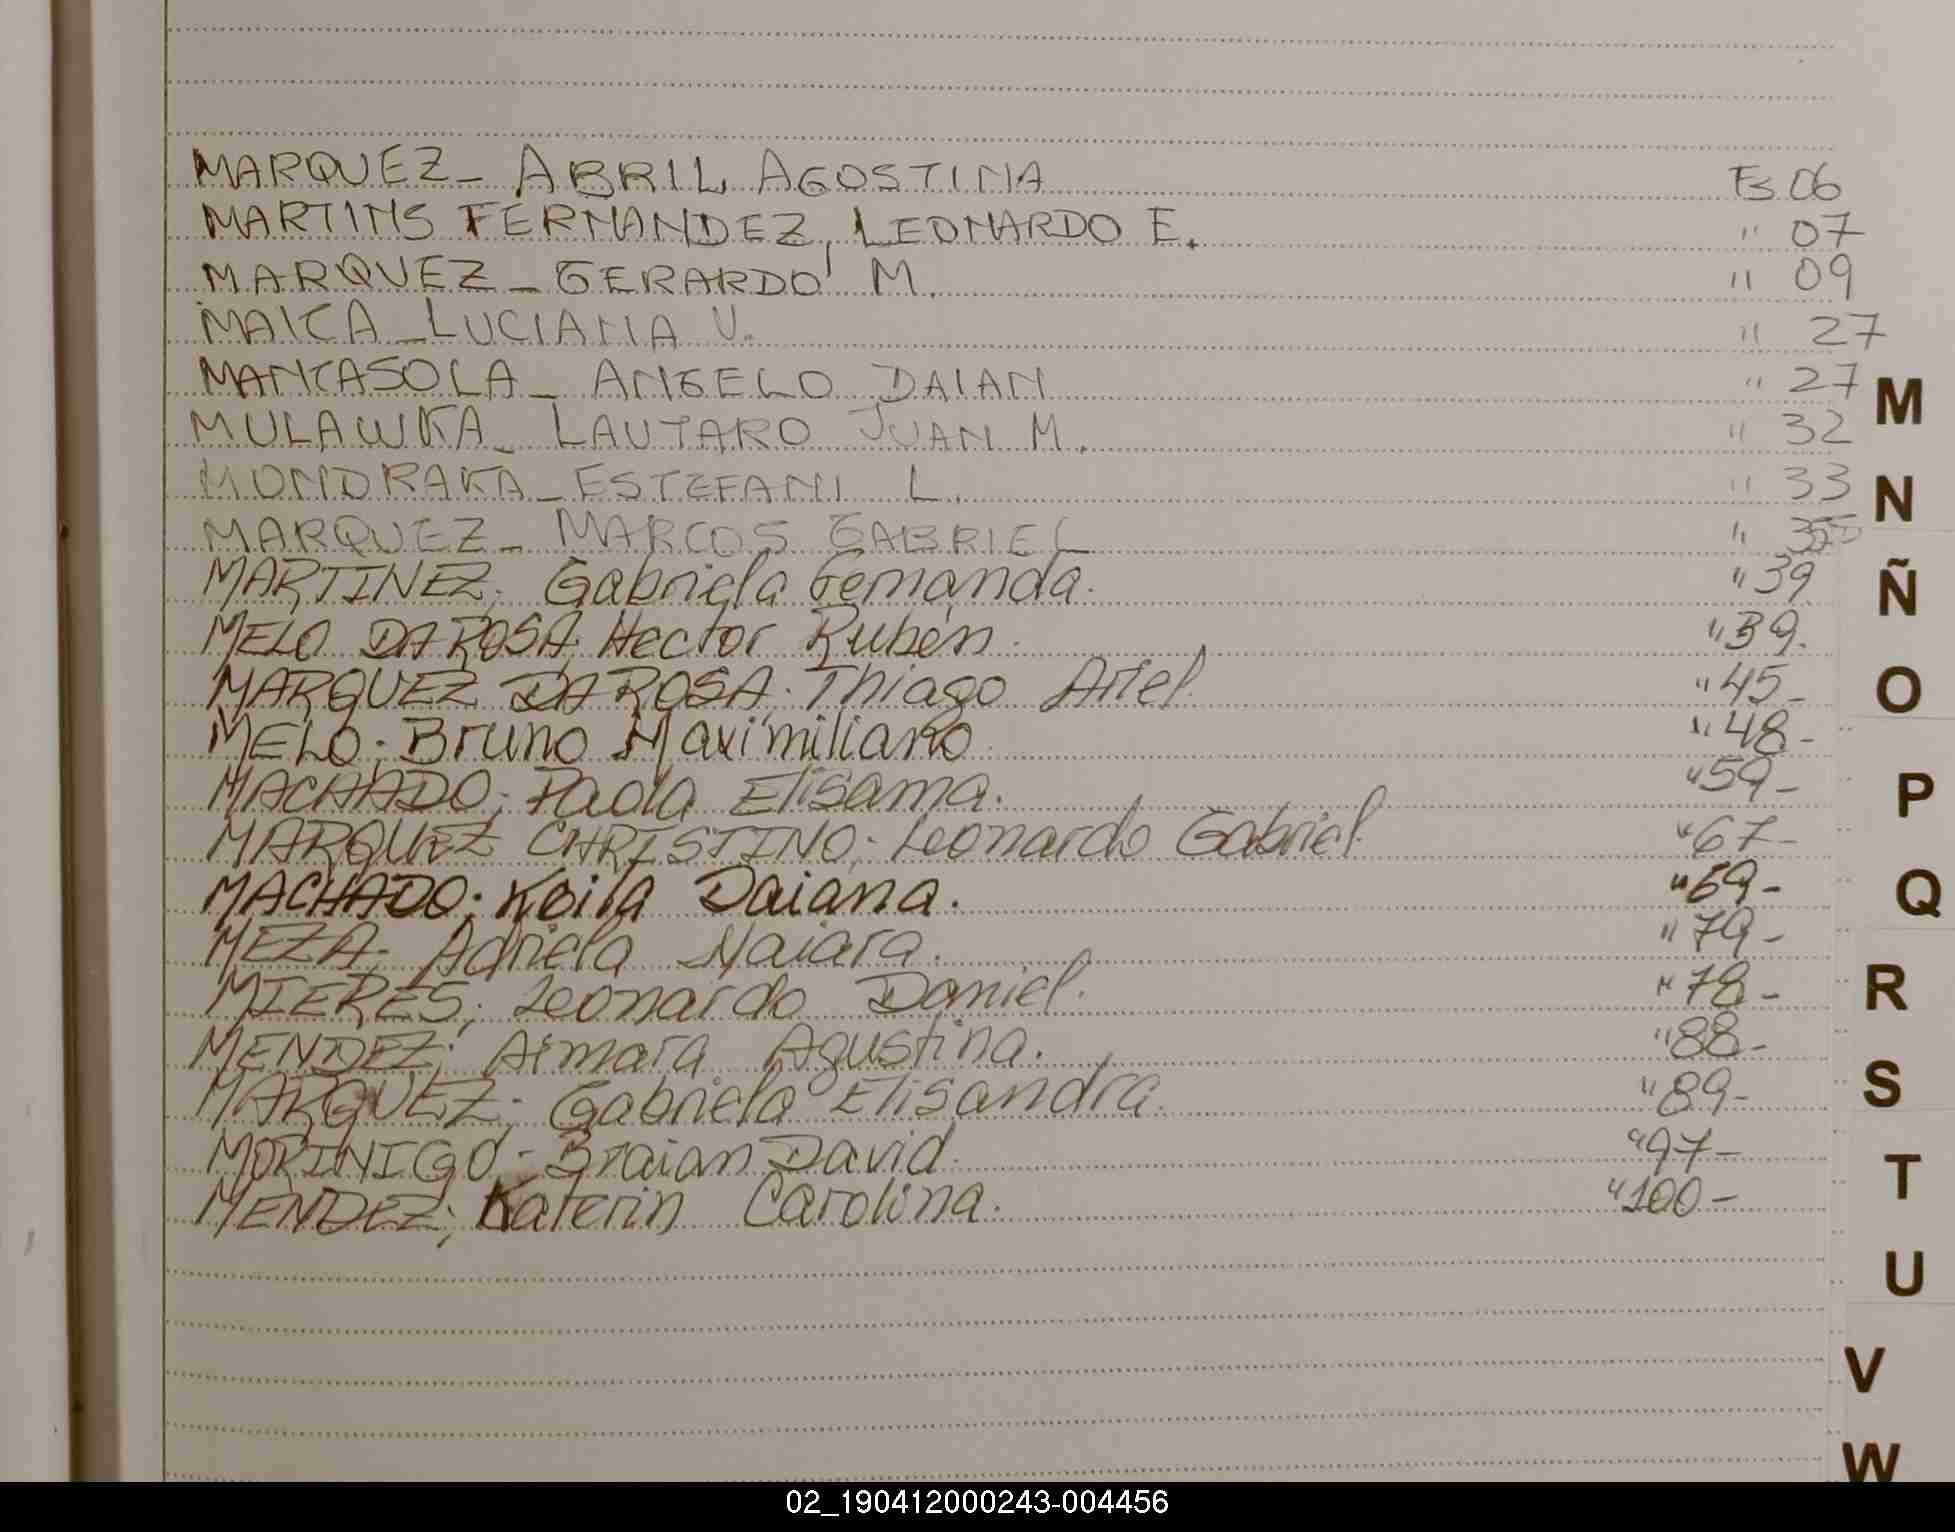 MARQUEZ - ABRIL AGOSTINA Fs 06
MARTINS FERNANDEZ, LEONARDO E. " 07
MARQUEZ - GERARDO M. " 09
MAICA - LUCIANA V. " 27
MANCASOLA - ANGELO DAIAN " 27
MULAWKA - LAUTARO JUAN M. " 32
MONDRAKA - ESTEFANI L. " 33
MARQUEZ - MARCOS GABRIEL "
MARTINEZ; Gabriela Fernanda. " 39
MELO DA ROSA; Hector Rubén. " 39.
MARQUEZ DA ROSA; Thiago Ariel. " 45-
MELO; Bruno Maximiliano " 48-
MACHADO; Paola Elisama. " 59-
MARQUEZ CHRISTINO; Leonardo Gabriel. " 67-
MACHADO; Keila Daiana. " 69-
MEZA; Adriela Naiara. " 79-
MIERES; Leonardo Daniel. " 78-
MENDEZ; Aimara Agustina. " 88-
MARQUEZ; Gabriela Elisandra. " 89-
MORINIGO - Braian David. " 97-
MENDEZ; Katerin Carolina. " 100-
M
N
Ñ
O
P
Q
R
S
T
U
V
W
02_190412000243-004456